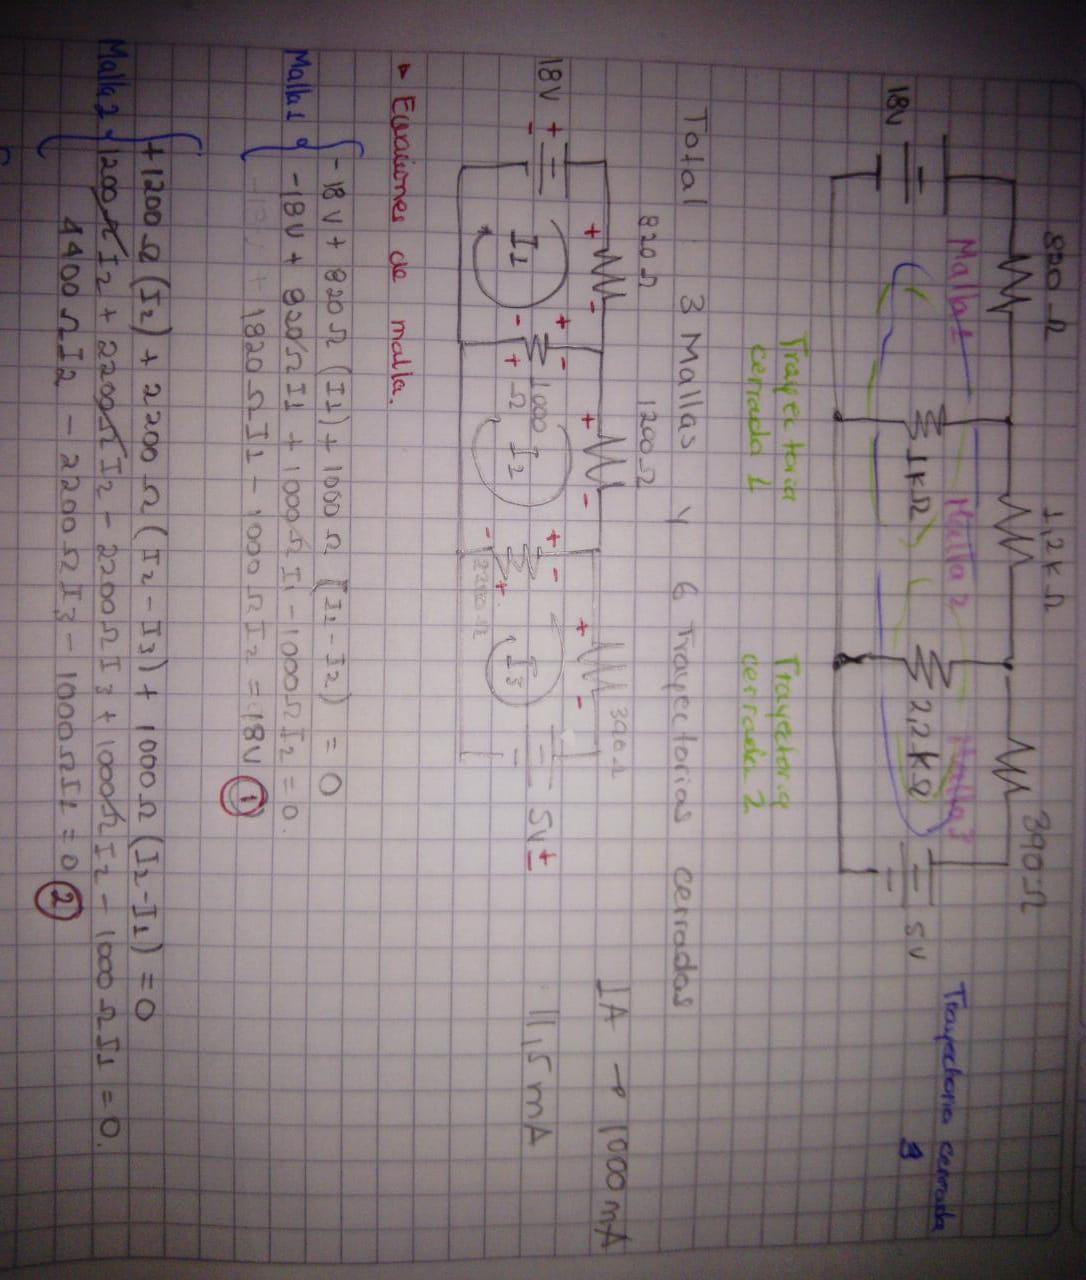 820 Ω 1,2k Ω 390 Ω
Malla 1 Malla 2 Malla 3
Trayectoria cerrada
3
18V 1kΩ 2,2kΩ 5V
Trayectoria
cerrada 1
Trayectoria
cerrada 2
Total 3 Mallas y 6 Trayectorias cerradas
820Ω 1200Ω 390Ω
1A → 1000mA
18V + - + - + - + - + - + - + - 5V ±
I1 1000 Ω I2 2200Ω I3
11,5mA
▸ Ecuaciones de malla.
Malla 1
-18V + 820Ω (I1) + 1000Ω (I1-I2) = 0
-18V + 820ΩI1 + 1000ΩI1 - 1000ΩI2 = 0.
1820ΩI1 - 1000ΩI2 = 18V ①
Malla 2
+1200Ω (I2) + 2200Ω (I2-I3) + 1000Ω (I2-I1) = 0
1200ΩI2 + 2200ΩI2 - 2200ΩI3 + 1000ΩI2 - 1000ΩI1 = 0.
4400ΩI2 - 2200ΩI3 - 1000ΩI1 = 0 ②